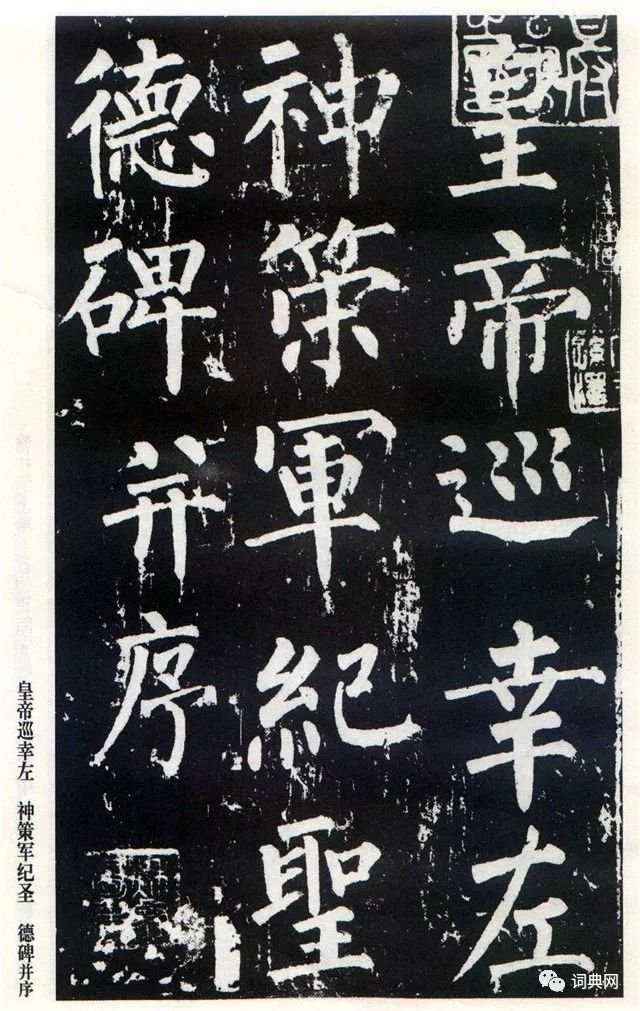 皇帝巡幸左
神策軍紀聖
德碑并序
皇帝巡幸左 神策军纪圣 德碑并序
词典网